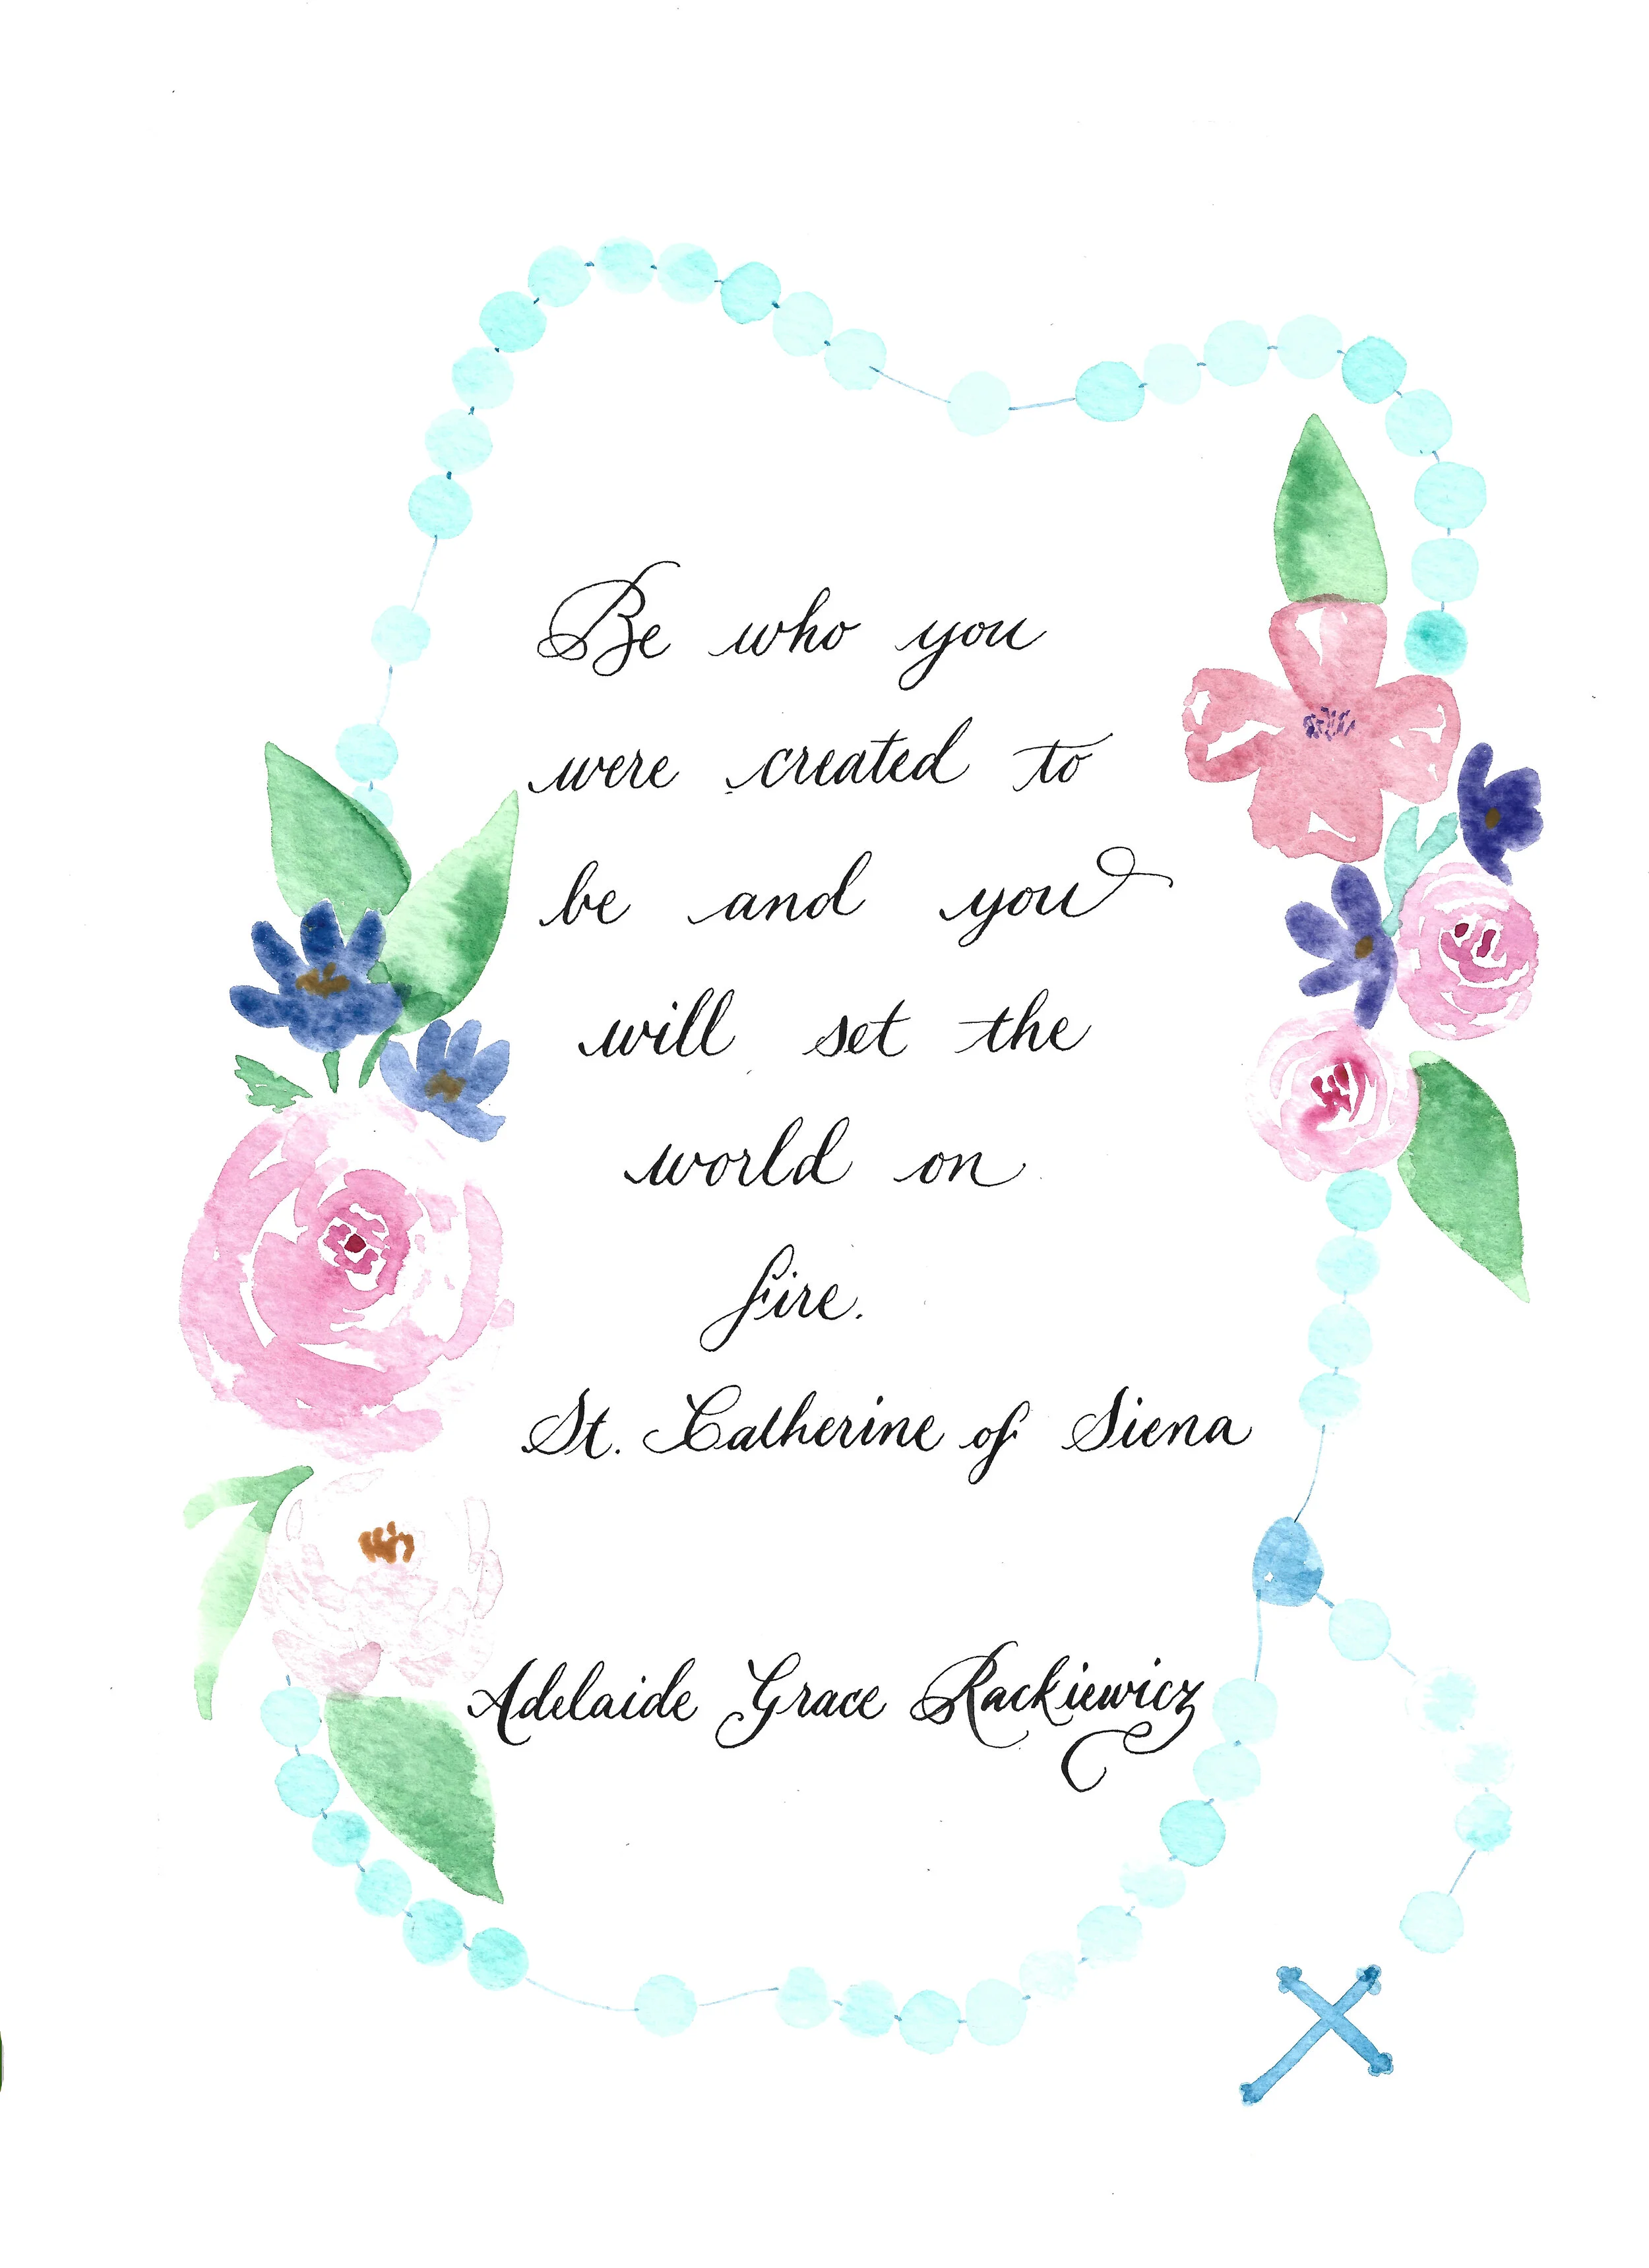 Be who you
were created to
be and you
will set the
world on
fire.
St. Catherine of Siena
Adelaide Grace Rackiewicz